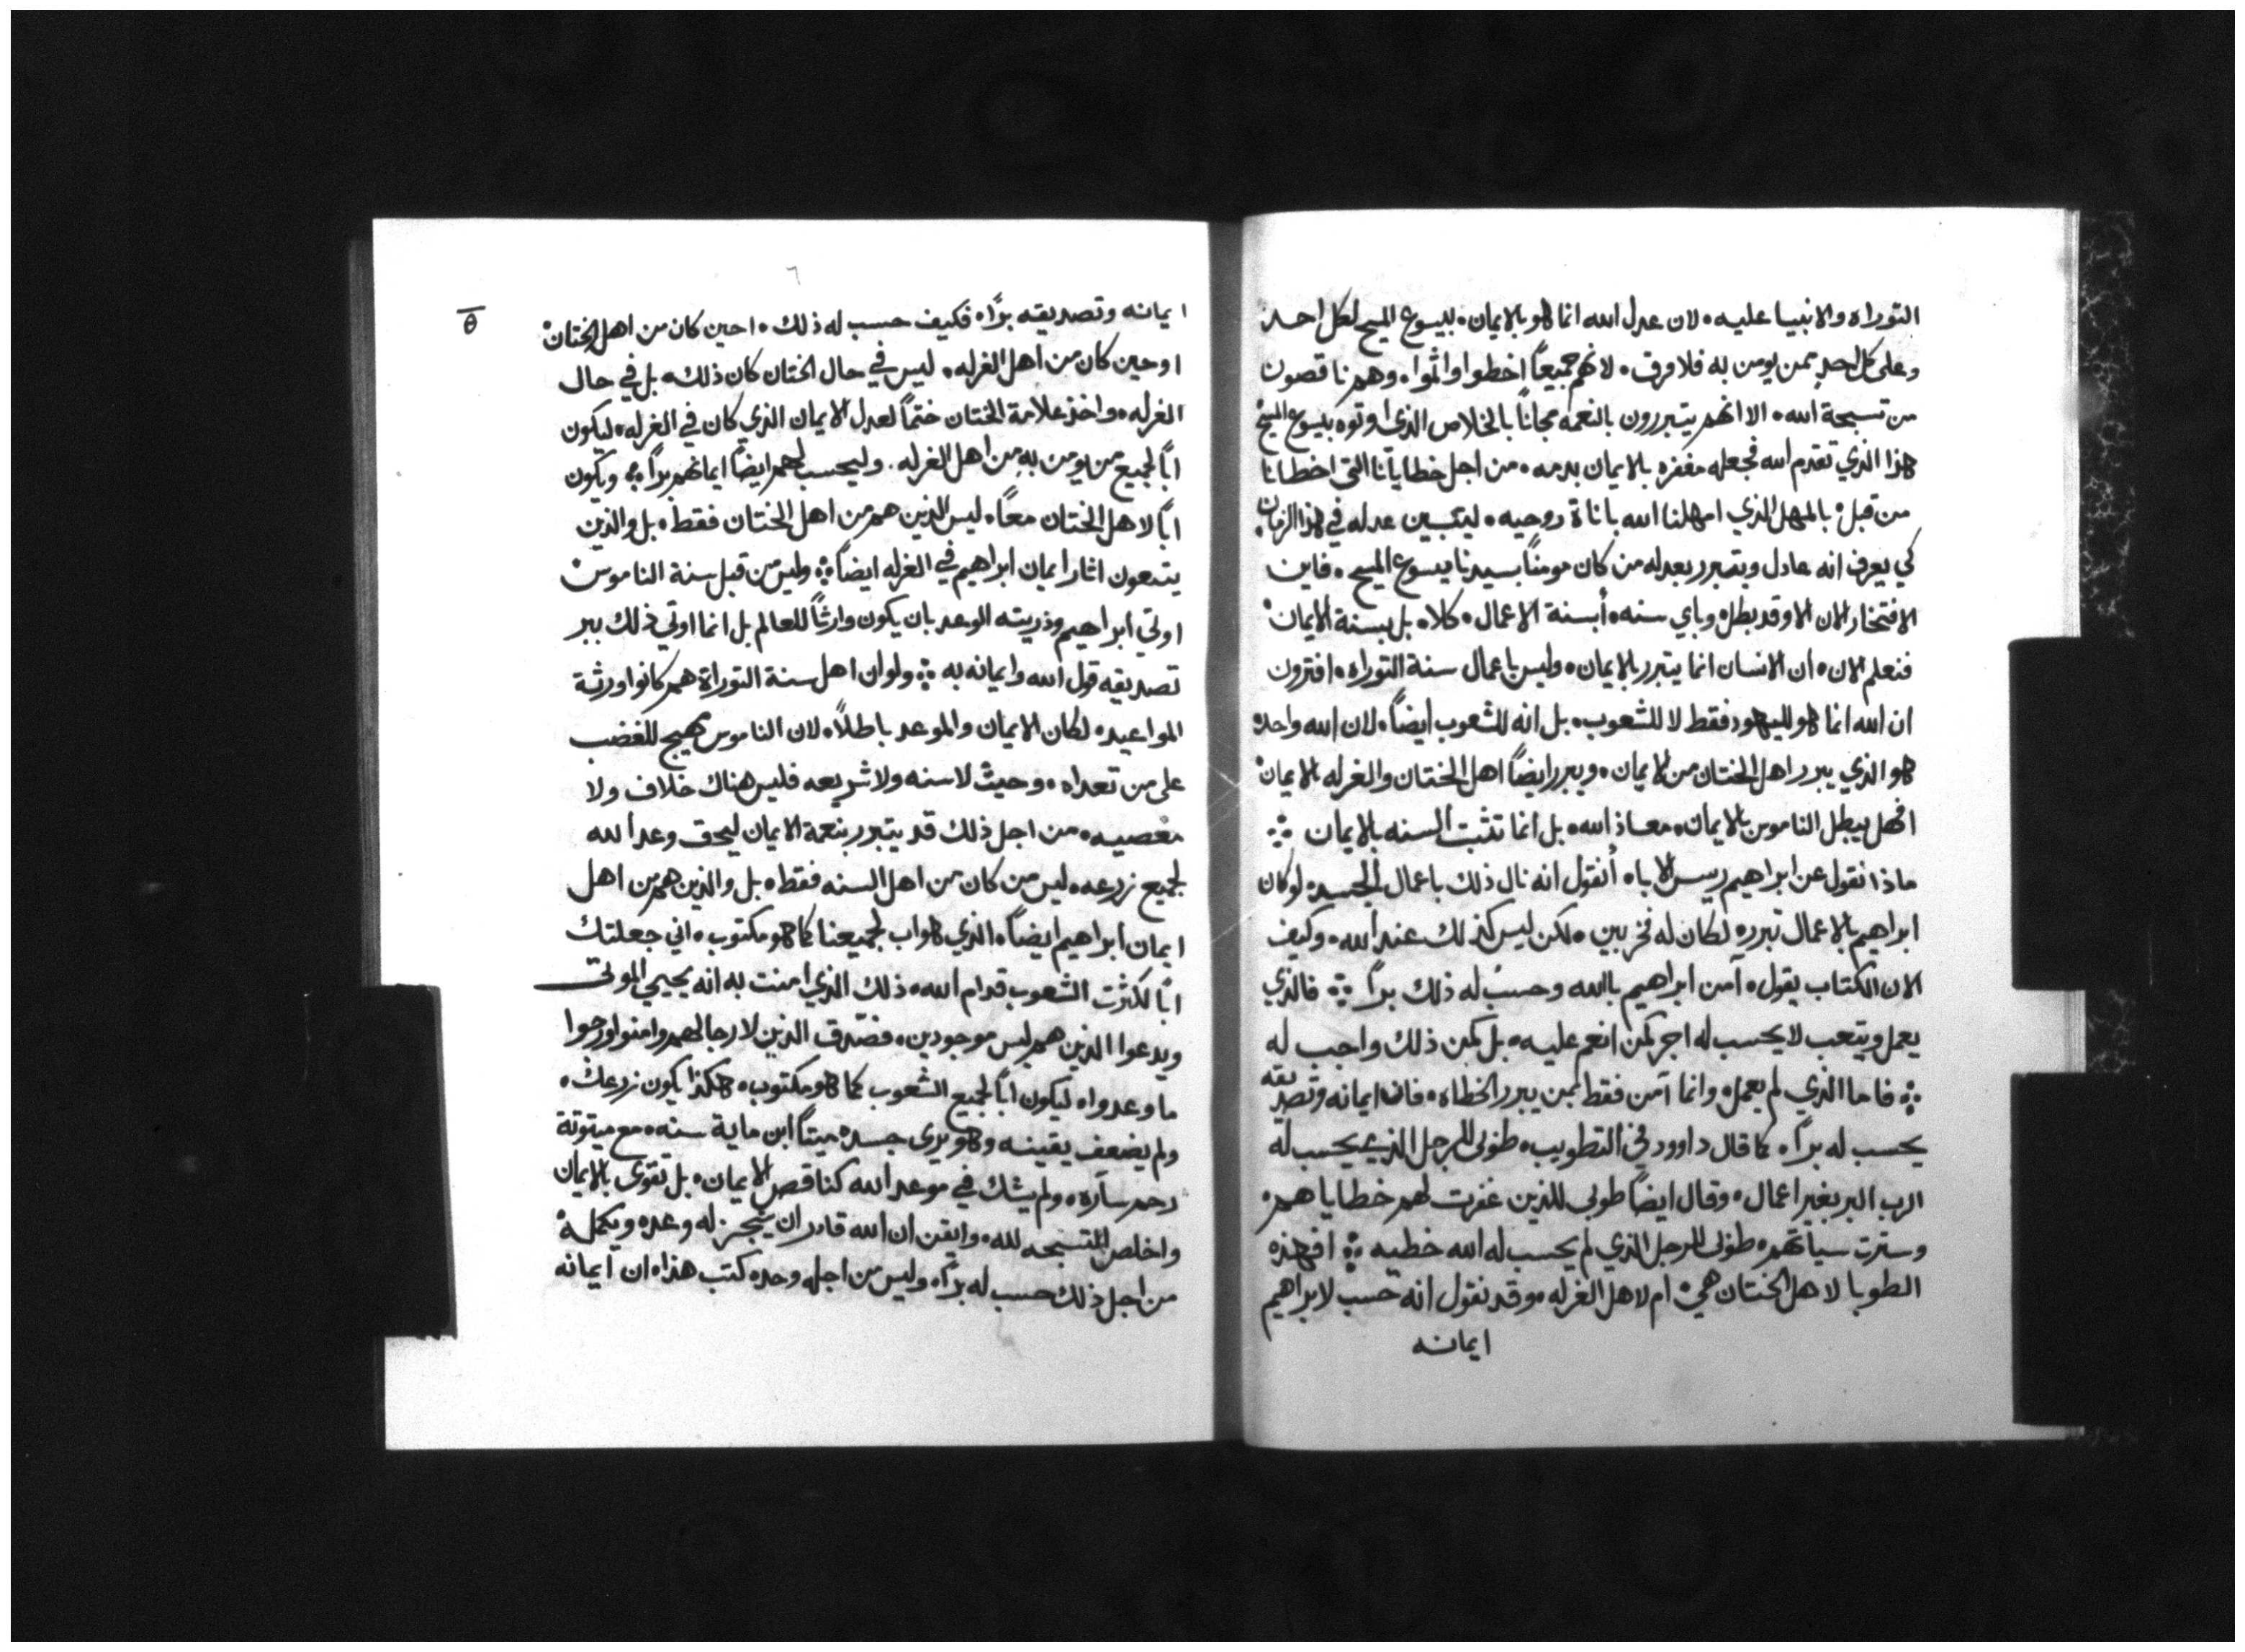 التوراه والانبيا عليه٠ لان عدل الله انما هو بالايمان٠ بيسوع المسيح لكل احد
وعلى كل احد بمن يومن به فلا فرق٠ لانهم جميعاً اخطوا واثموا٠ وهمر ناقصون
من تسبحة الله٠ الا انهم يتبررون بالنعمه مجاناً بالخلاص الذي اوتوه بيسوع المسيح
هذا الذي تقدم الله فجعله مغفره بالايمان بدمه٠ من اجل خطايانا التي اخطانا
من قبل٠ بالمهل الذي امهلنا الله باناة روحيه٠ ليتبين عدله في هذا الزمان٠
كي يعرف انه عادل ويتبرر بعدله من كان مومناً بسيدنا يسوع المسيح٠ فاين
الافتخار الان الا وقد بطل٠ وباي سنه٠ أبسنة الاعمال٠ كلا٠ بل بسنة الايمان٠
فنعلم الان٠ ان الانسان انما يتبرر بالايمان٠ وليس باعمال سنة التوراه٠ افترون
ان الله انما هو لليهود فقط لا للشعوب٠ بل انه للشعوب ايضاً٠ لان الله واحد٠
هو الذي يبرر اهل الختان من الايمان٠ ويبرر ايضاً اهل الختان والغرله بالايمان٠
افهل يبطل الناموس بالايمان٠ معاذ الله٠ بل انما تثبت السنه بالايمان ܀
ماذا نقول عن ابراهيم ريس الابا٠ أنقول انه نال ذلك باعمال الجسد٠ لو كان
ابراهيم بالاعمال تبرر٠ لكان له فخر بين٠ لكن ليس كذلك عند الله٠ وكيف
الان الكتاب يقول٠ آمن ابراهيم بالله وحسب له ذلك براً ܀ فالذي
يعمل ويتعب لا يحسب له اجر كمن انعم عليه٠ بل كمن ذلك واجب له
܀ فاما الذي لم يعمل٠ وانما آمن فقط بمن يبرر الخطاه٠ فان ايمانه وتصديقه
يحسب له براً٠ كما قال داوود في التطويب٠ طوبى للرجل الذي يحسب له
الرب البر بغير اعمال٠ وقال ايضاً طوبى للذين غفرت لهمر خطاياهمر٠
وسترت سياتهمر٠ طوبى للرجل الذي لم يحسب له الله خطيه ܀ افهذه
الطوبا لاهل الختان هي٠ ام لاهل الغرله٠ وقد نقول انه حسب لابراهيم
ايمانه
٦
θ
ايمانه وتصديقه براً٠ فكيف حسب له ذلك٠ احين كان من اهل الختان٠
او حين كان من اهل الغرله٠ ليس في حال الختان كان ذلك٠ بل في حال
الغرله٠ واخذ علامة الختان ختماً لعدل الايمان الذي كان في الغرله٠ ليكون
اباً لجميع من يومن به من اهل الغرله٠ وليحسب لهمر ايضاً ايمانهمر براً ܀ ويكون
اباً لاهل الختان معاً٠ ليس الذين همر من اهل الختان فقط٠ بل والذين
يتبعون اثار ايمان ابراهيم في الغرله ايضاً ܀ وليس من قبل سنة الناموس
اوتي ابراهيم وذريته الوعد بان يكون وارثاً للعالم بل انما اوتي ذلك ببر
تصديقه قول الله وايمانه به ܀ ولو ان اهل سنة التوراة همر كانوا ورثة
المواعيد٠ لكان الايمان والموعد باطلاً٠ لان الناموس مهيج للغضب
على من تعداه٠ وحيث لا سنه ولا شريعه فليس هناك خلاف ولا
معصيه٠ من اجل ذلك قد يتبرر بنعمة الايمان ليحق وعد الله
لجميع زرعه٠ ليس من كان من اهل السنه فقط٠ بل والذين همر من اهل
ايمان ابراهيم ايضاً٠ الذي هو اب لجميعنا كما هو مكتوب٠ اني جعلتك
اباً لكثرت الشعوب قدام الله٠ ذلك الذي امنت به انه يحيي الموتى
ويدعوا الذين همر ليس موجودين٠ فصدق الذين لا رجا لهمر وامنوا ورجوا
ما وعدوا٠ ليكون اباً لجميع الشعوب كما هو مكتوب٠ هكذا يكون زرعك٠
ولم يضعف يقينه وهو يرى جسده ميتاً ابن ماية سنه٠ مع ميتوتة
رحمر ساره٠ ولم يشك في موعد الله كناقص الايمان٠ بل تقوى بالايمان
واخلص التسبحه لله٠ وايقن ان الله قادر ان ينجز له وعده ويكمله٠
من اجل ذلك حسب له براً٠ وليس من اجله وحده كتب هذا٠ ان ايمانه